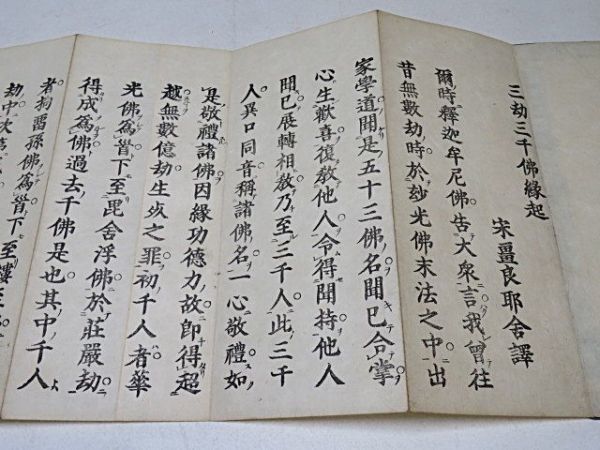 三劫三千佛緣起
宋畺良耶舍譯
爾時釋迦牟尼佛告大衆言我曾往
昔無數劫時於妙光佛末法之中出
家學道聞是五十三佛名聞已合掌
心生歡喜復教他人令得聞持他人
聞已展轉相教乃至三千人此三千
人異口同音稱諸佛名一心敬禮如
是敬禮諸佛因緣功德力故即得超
越無數億劫生死之罪初千人者華
光佛爲首下至毘舍浮佛於莊嚴劫
得成爲佛過去千佛是也其中千人
者拘畱孫佛爲首下至樓至
劫中次第